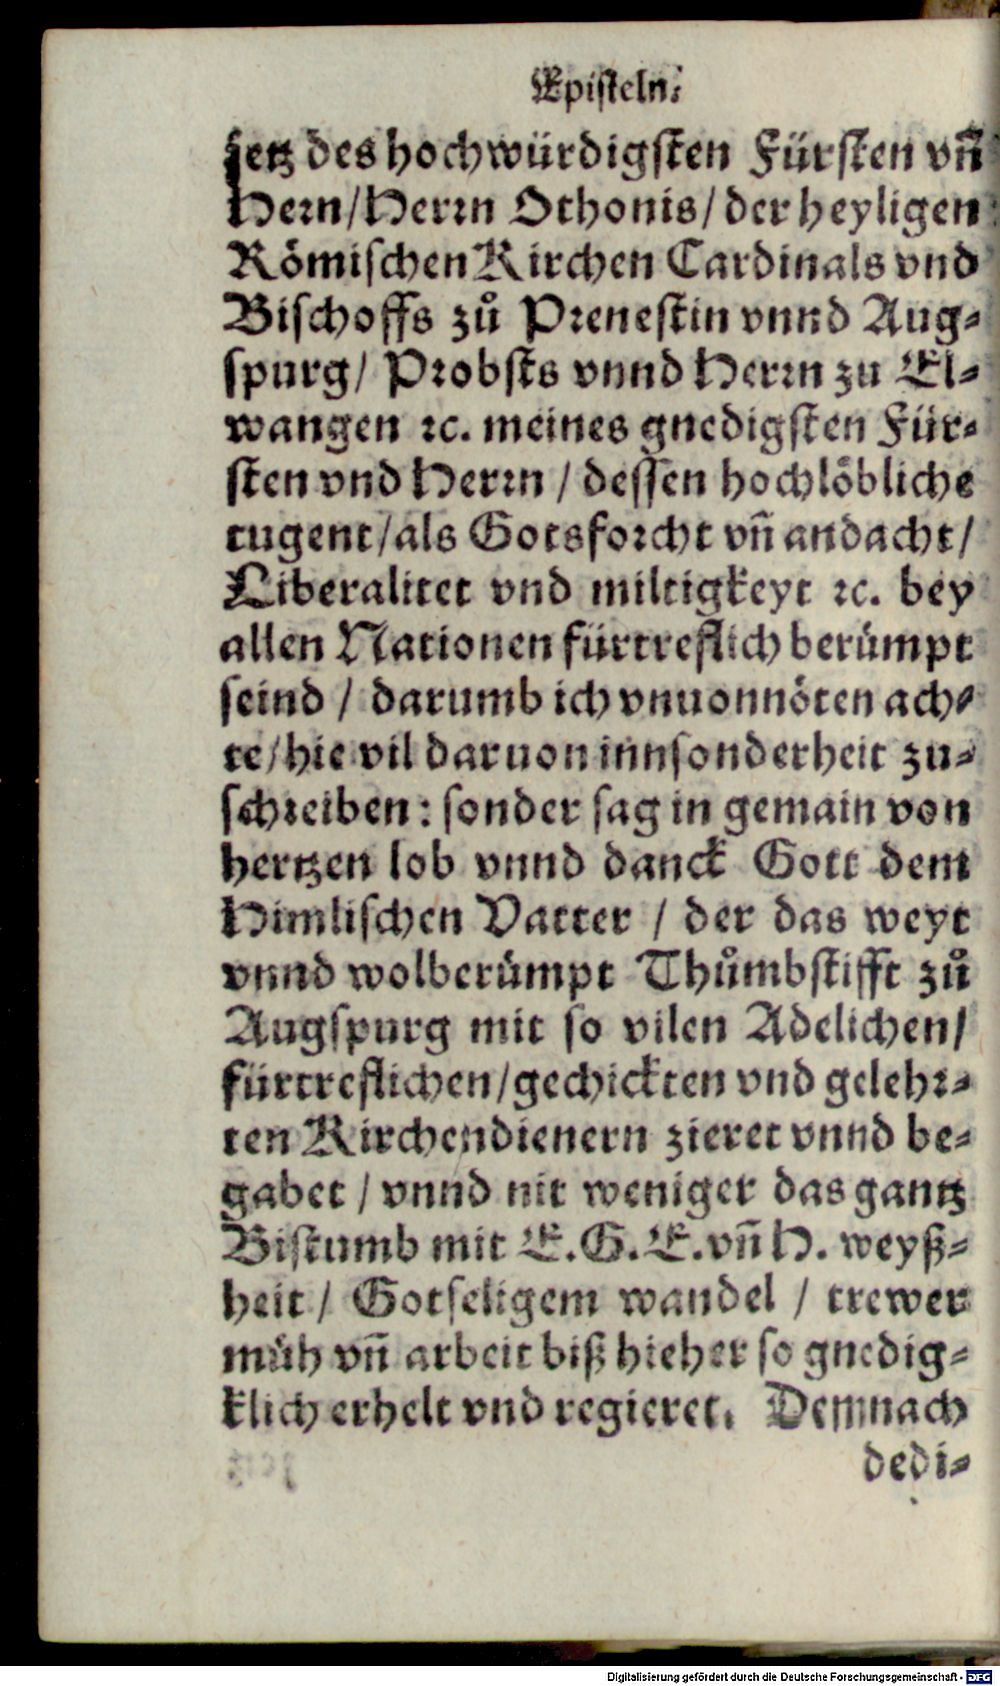 Episteln.
jetz des hochwürdigsten Fürsten vñ
Hern/Herrn Othonis/der heyligen
Römischen Kirchen Cardinals vnd
Bischoffs zů Prenestin vnnd Aug⸗
spurg/ Probsts vnnd Herrn zu El⸗
wangen ꝛc. meines gnedigsten Für⸗
sten vnd Herrn / dessen hochlöbliche
tugent/als Gotsforcht vñ andacht/
Liberalitet vnd miltigkeyt ꝛc. bey
allen Nationen fürtreflich berümpt
seind / darumb ich vnuonnöten ach⸗
te/hie vil daruon innsonderheit zu⸗
schreiben: sonder sag in gemain von
hertzen lob vnnd danck Gott dem
Himlischen Vatter / der das weyt
vnnd wolberümpt Thůmbstifft zů
Augspurg mit so vilen Adelichen/
fürtreflichen/gechickten vnd gelehr⸗
ten Kirchendienern zieret vnnd be⸗
gabet / vnnd nit weniger das gantz
Bistumb mit E.G.E.vñ H. weyß⸗
heit / Gotseligem wandel / trewer
müh vñ arbeit biß hieher so gnedig⸗
klich erhelt vnd regieret. Demnach
dedi⸗
Digitalisierung gefördert durch die Deutsche Forschungsgemeinschaft - DFG